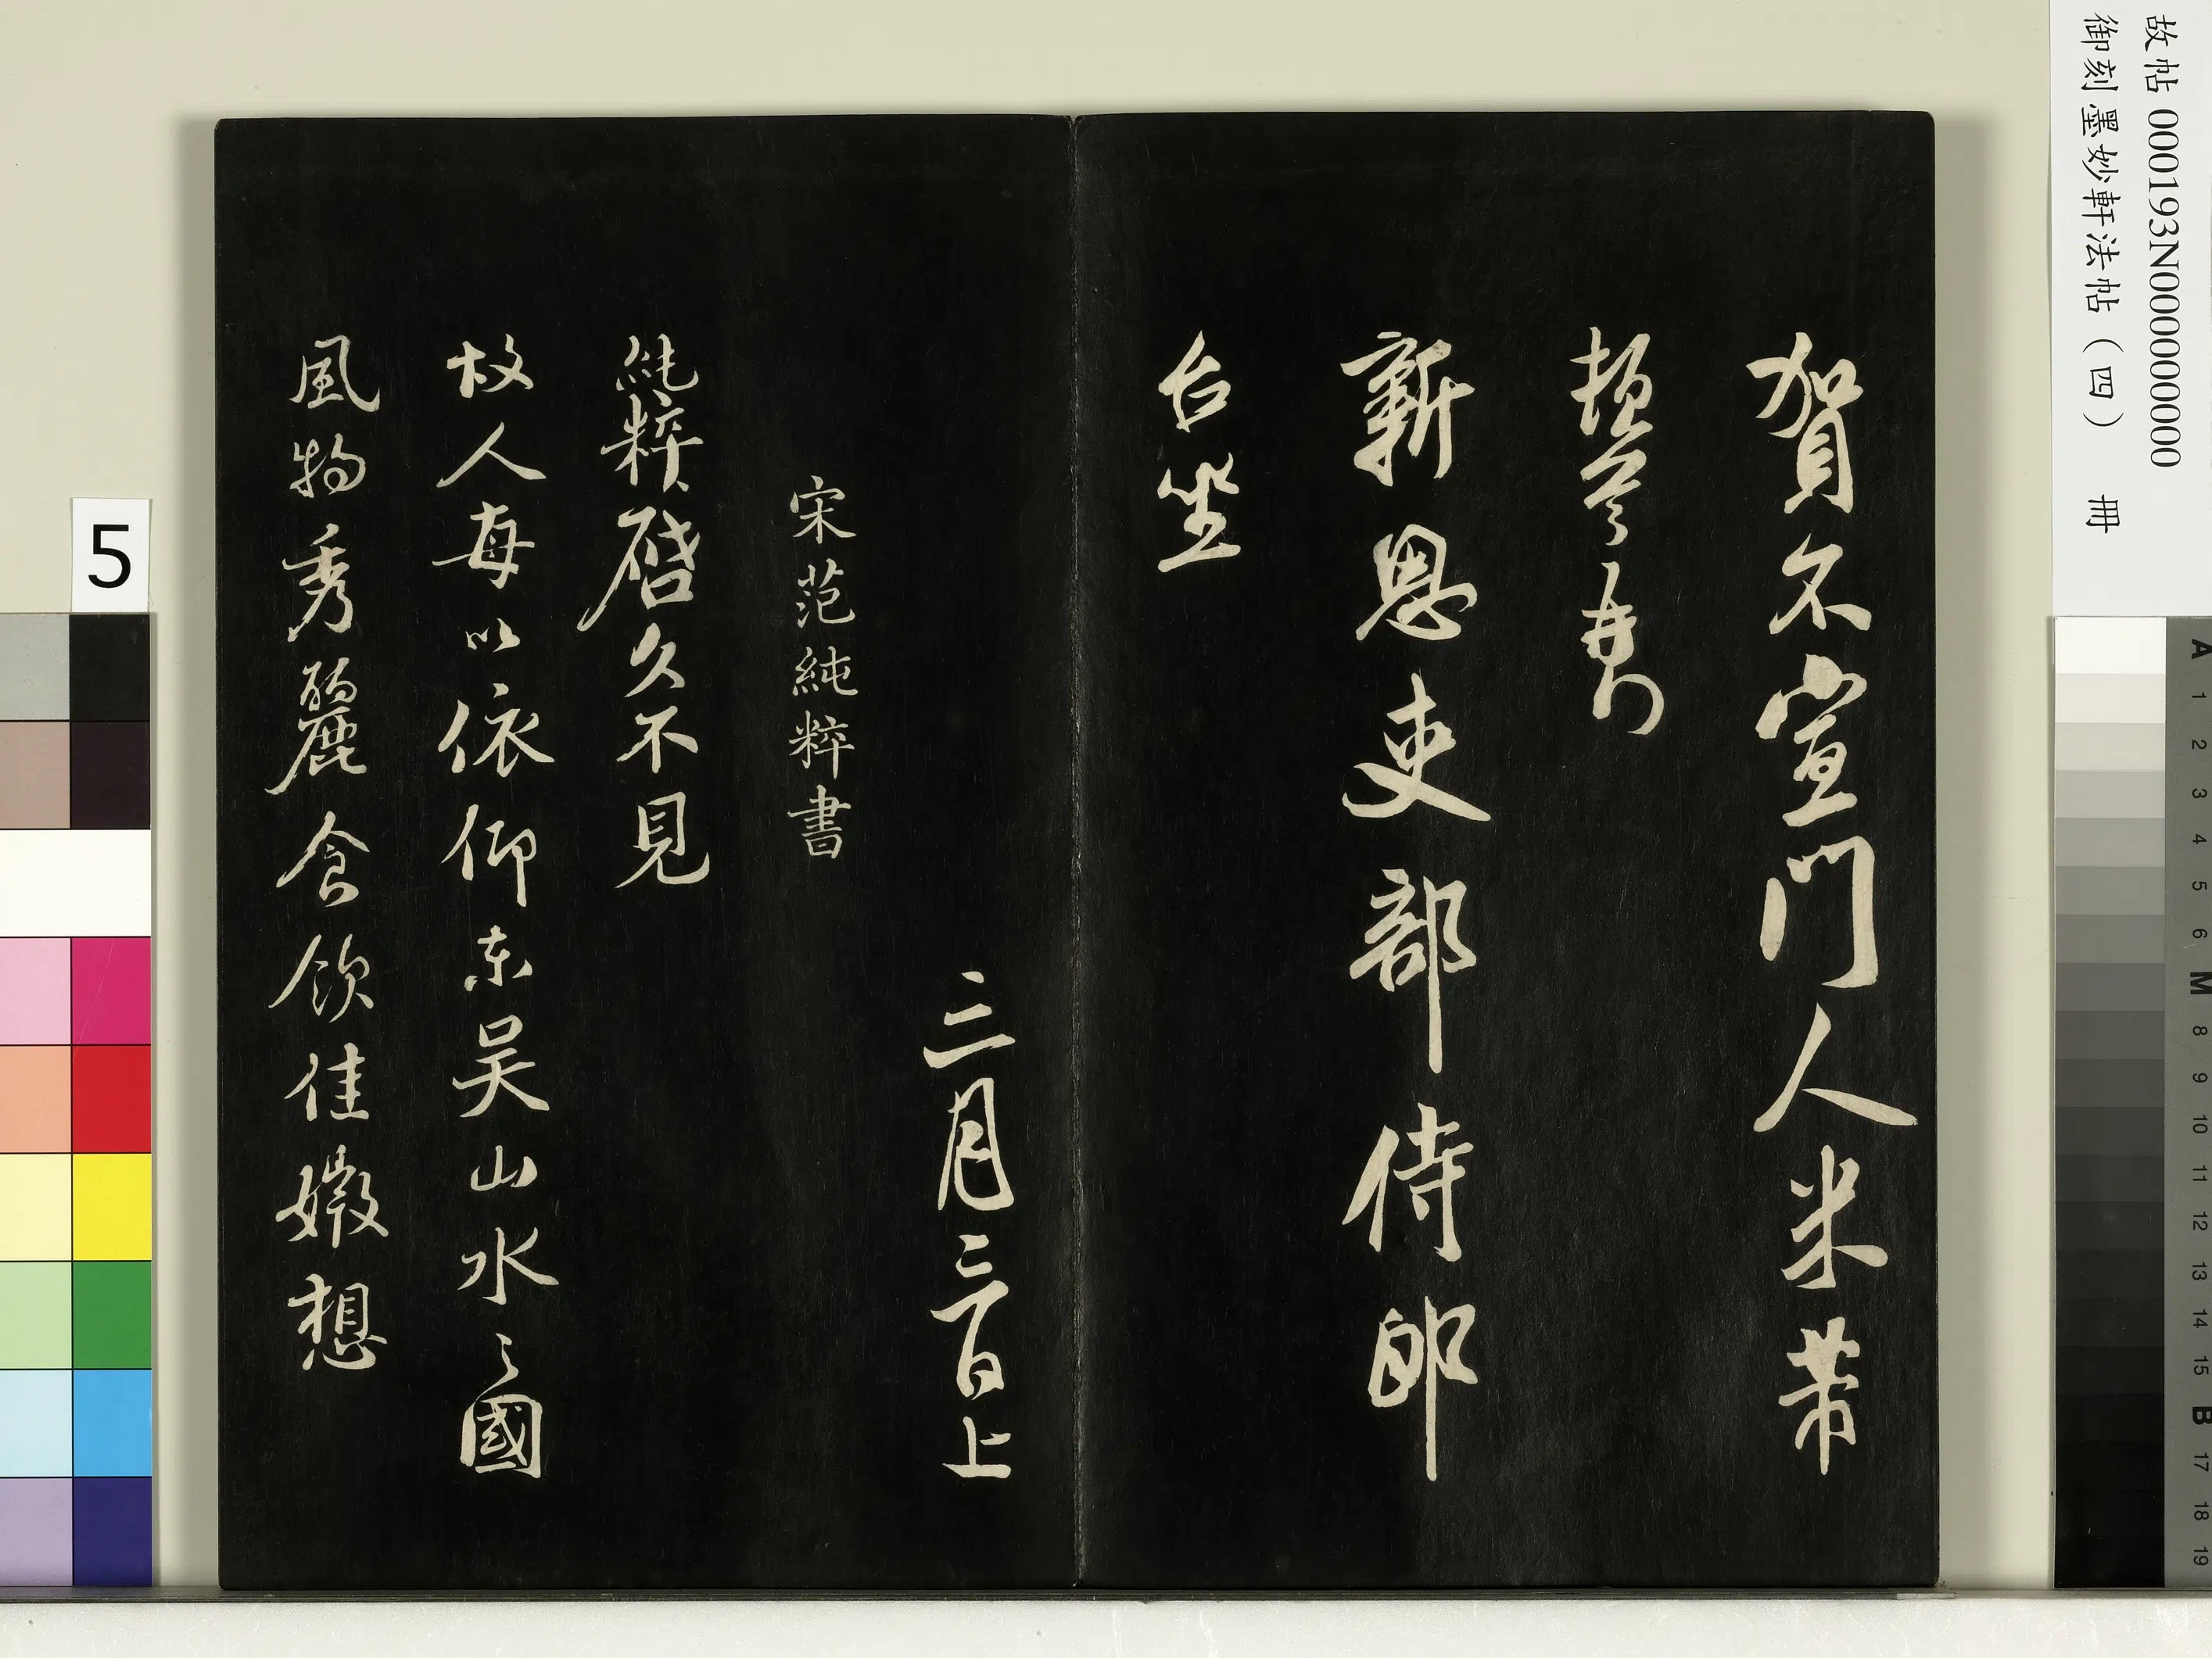 故帖 000193N000000000
御刻墨妙軒法帖（四） 冊
賀不宣門人米芾
頓首再拜
新恩吏部侍郎
台坐
三月三日上
宋范純粹書
純粹啓久不見
故人每以依仰東吳山水之國
風物秀麗食飲佳媺想
5
A 1 2 3 4 5 6 M 8 9 10 11 12 13 14 15 B 17 18 19